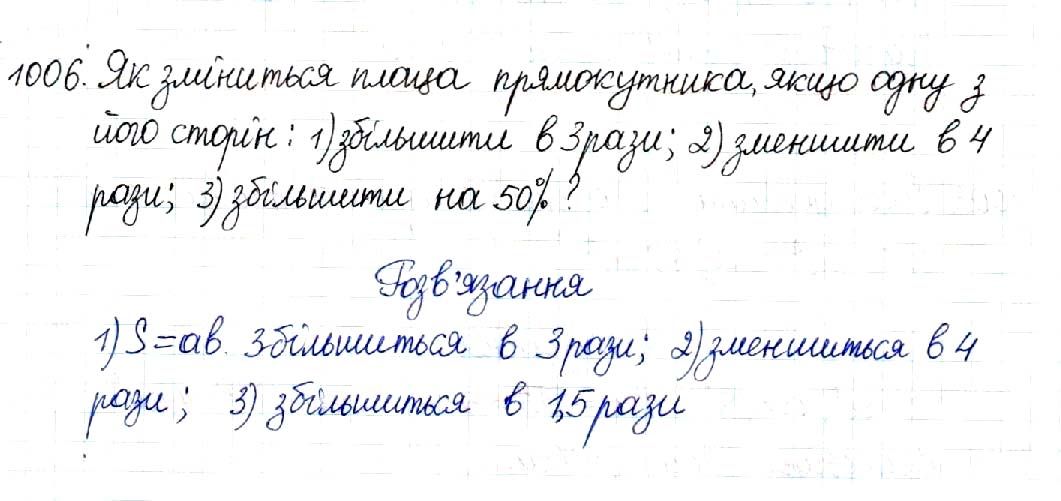 1006. Як зміниться площа прямокутника, якщо одну з
його сторін: 1) збільшити в 3 рази; 2) зменшити в 4
рази; 3) збільшити на 50%?
Розв'язання
1) S=ab. Збільшиться в 3 рази; 2) зменшиться в 4
рази; 3) збільшиться в 1,5 рази